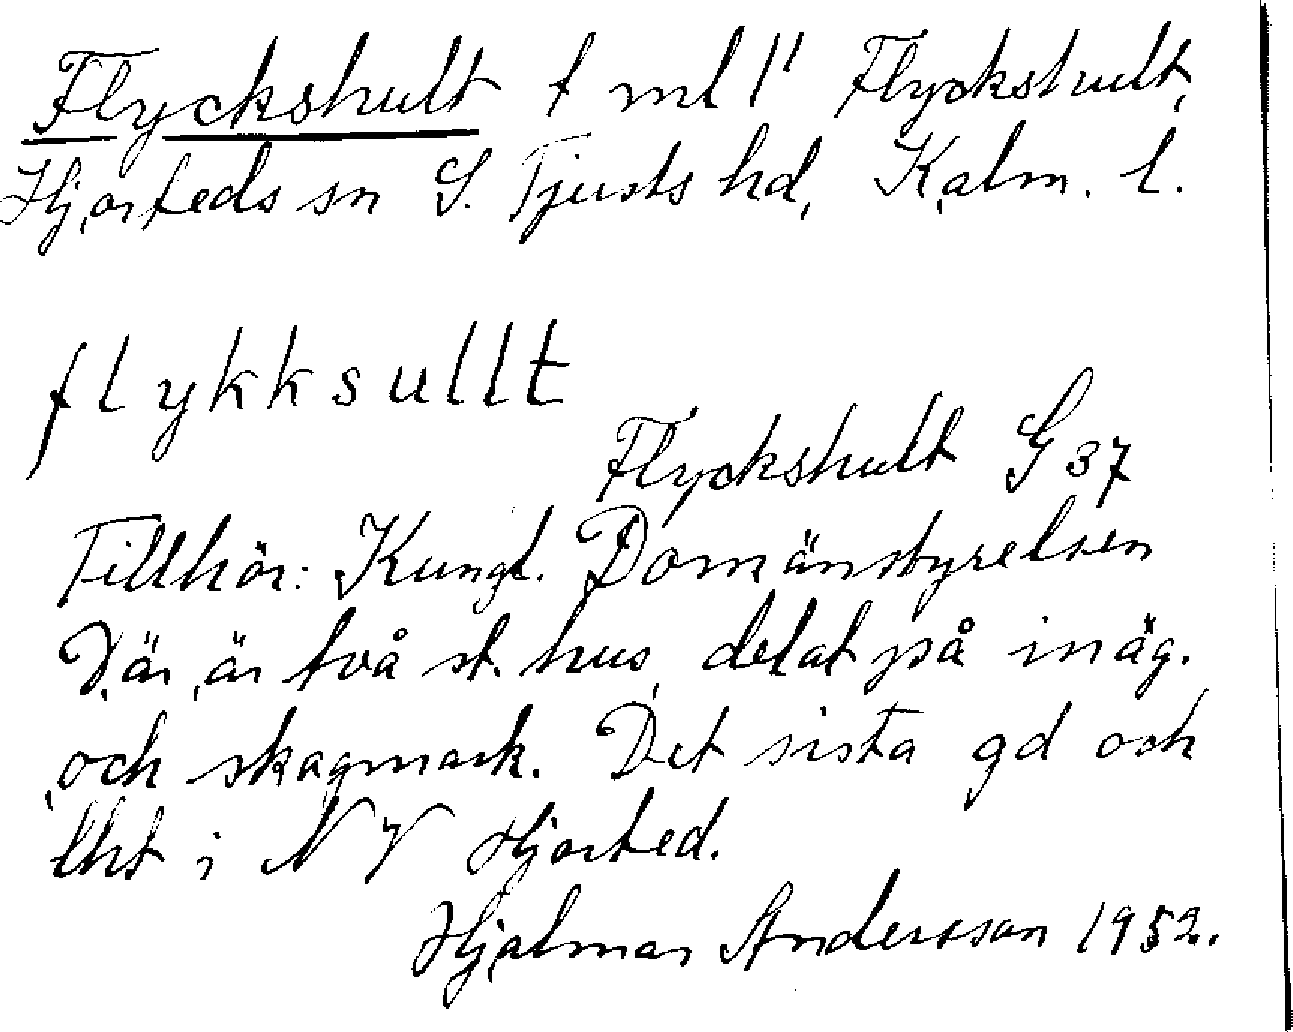 Flyckshult t ml 1" Flyckshult,
Hjorteds sn S. Tjusts hd, Kalm. l.
flykksullt
Flyckshult G 37
Tillhör: Kungl. Domänstyrelsen
Där är två st. hus, delat på inäg.
och skogmark. Det sista gd och
lht i NV Hjorted.
Hjalmar Andersson 1952.